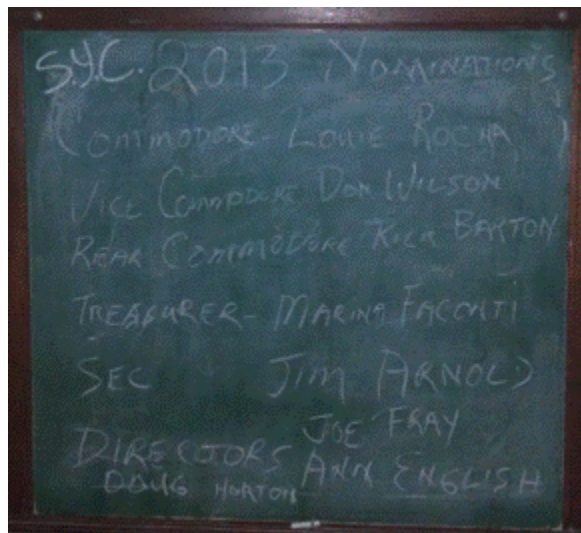 S.Y.C. 2013 NOMINATIONS
COMMODORE - LOUIE ROCHA
VICE COMMODORE DON WILSON
REAR COMMODORE RICK BARTON
TREASURER - MARINA FACONTI
SEC JIM ARNOLD
JOE FRAY
DIRECTORS ANN ENGLISH
DOUG HORTON